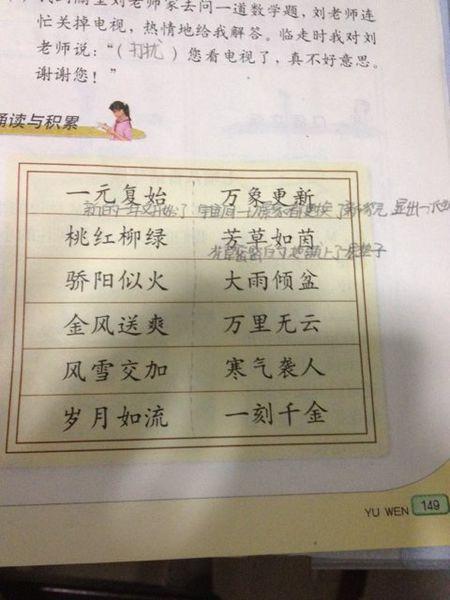 刘老师家去问一道数学题，刘老师连
忙关掉电视，热情地给我解答。临走时我对刘
老师说：“（打扰）您看电视了，真不好意思。
谢谢您！”
诵读与积累
一元复始 万象更新
新的一年又开始了 宇宙间一切景象都更换了
桃红柳绿 芳草如茵
骄阳似火 大雨倾盆
金风送爽 万里无云
风雪交加 寒气袭人
岁月如流 一刻千金
YU WEN 149